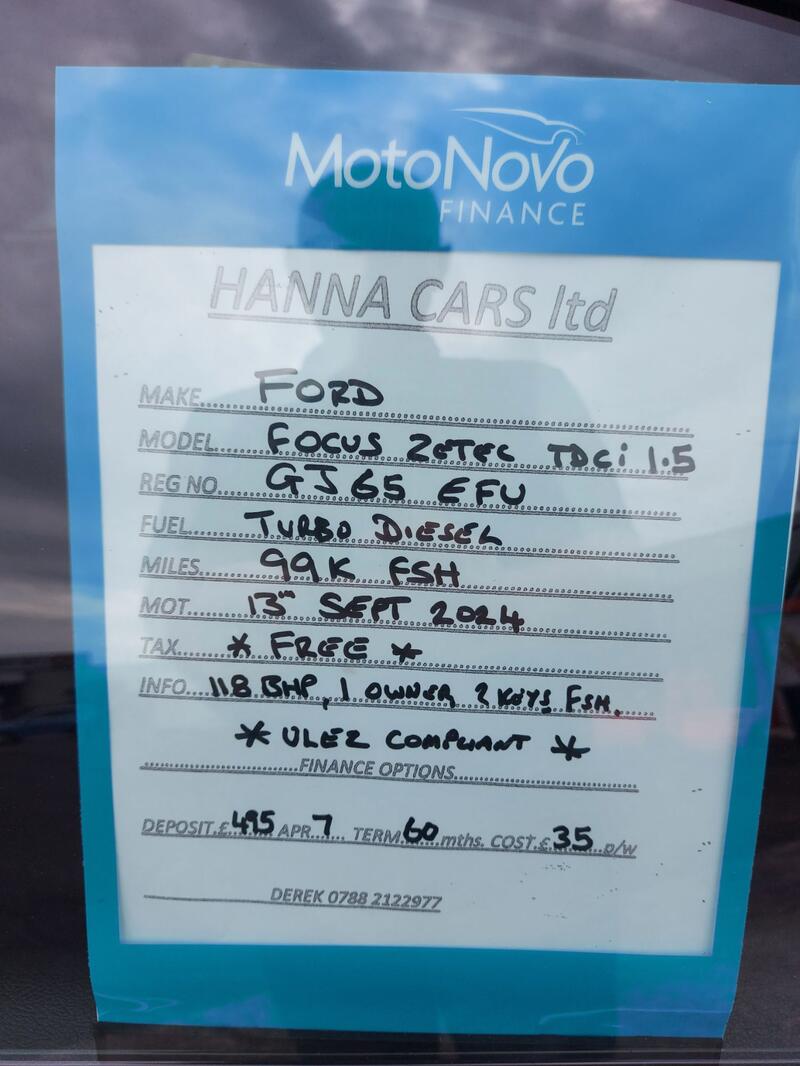 MotoNovo
FINANCE
HANNA CARS ltd
MAKE.... FORD
MODEL.... FOCUS ZETEC TDCi 1.5
REG NO.... GJ65 EFU
FUEL.... TURBO DIESEL
MILES.... 99K FSH
MOT.... 13TH SEPT 2024
TAX.... * FREE *
INFO.... 118 BHP, 1 OWNER 2 KEYS FSH.
* ULEZ COMPLIANT *
....FINANCE OPTIONS....
DEPOSIT.£495 APR.7.... TERM.60...mths. COST.£.35..p/w
DEREK 0788 2122977